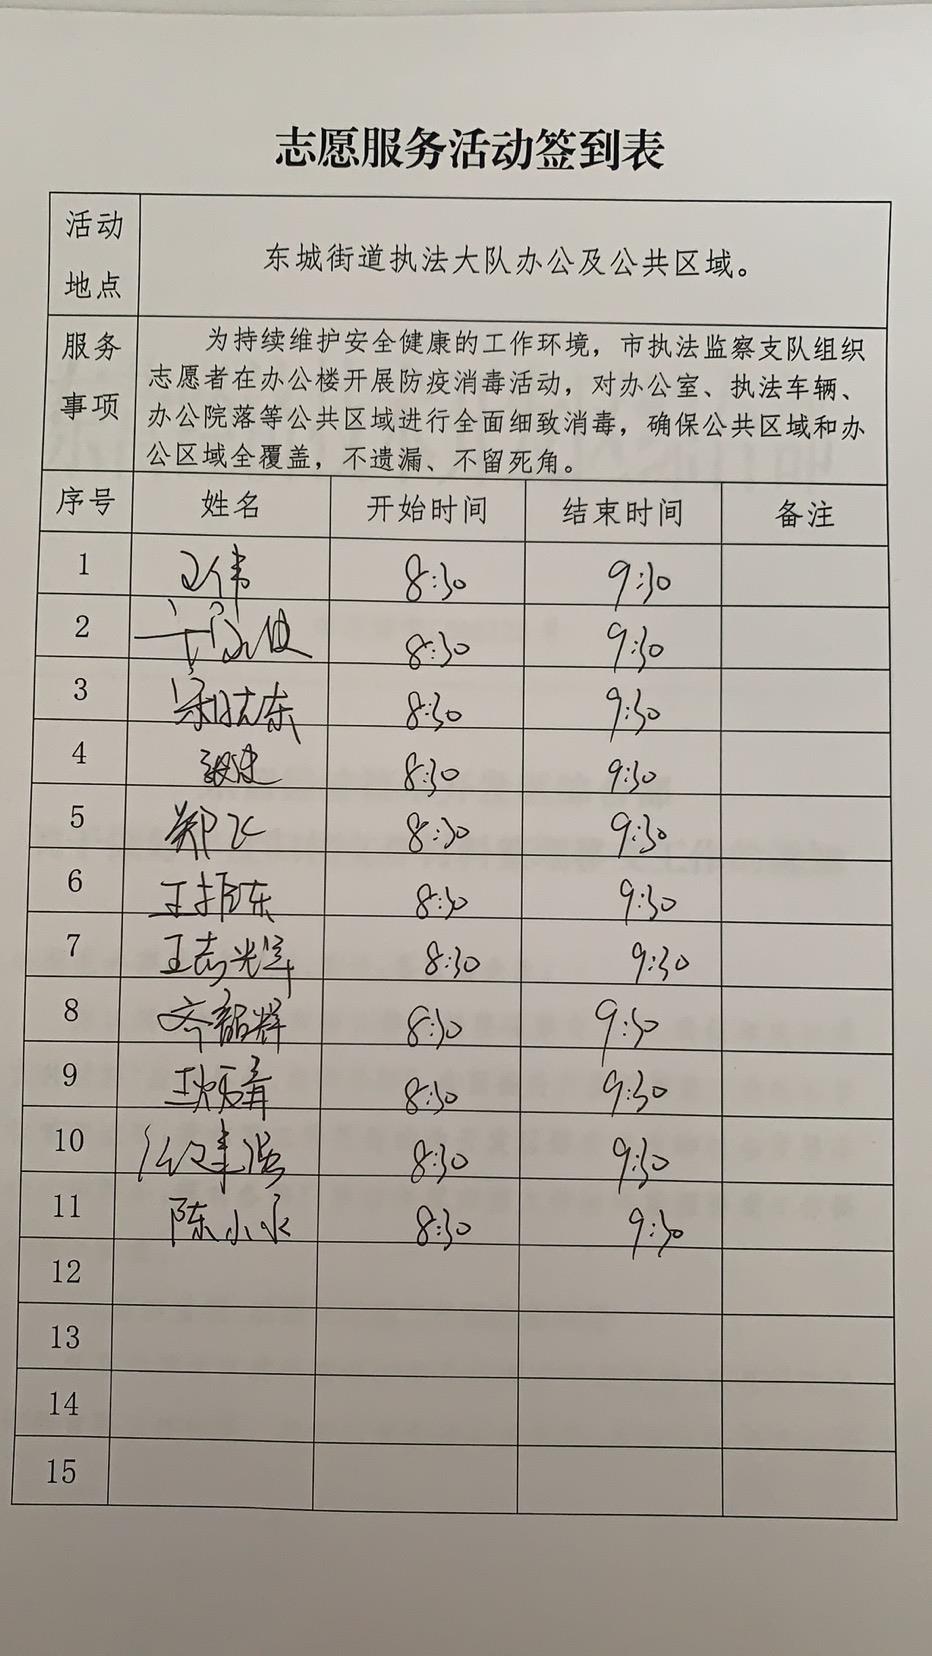 志愿服务活动签到表
活动地点
东城街道执法大队办公及公共区域。
服务事项
为持续维护安全健康的工作环境，市执法监察支队组织
志愿者在办公楼开展防疫消毒活动，对办公室、执法车辆、
办公院落等公共区域进行全面细致消毒，确保公共区域和办
公区域全覆盖，不遗漏、不留死角。
序号 姓名 开始时间 结束时间 备注
1 8:30 9:30
2 8:30 9:30
3 8:30 9:30
4 8:30 9:30
5 郑飞 8:30 9:30
6 王振东 8:30 9:30
7 8:30 9:30
8 齐韶辉 8:30 9:30
9 8:30 9:30
10 8:30 9:30
11 陈小永 8:30 9:30
12
13
14
15